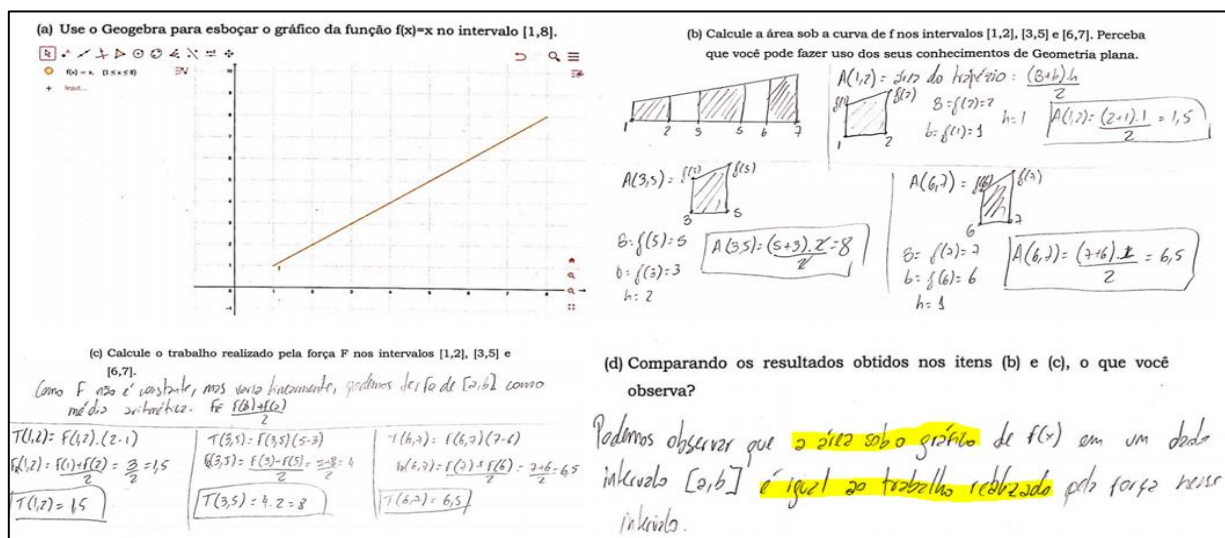 (a) Use o Geogebra para esboçar o gráfico da função f(x)=x no intervalo [1,8].
f(x) = x, (1 ≤ x ≤ 8)
Input...
(b) Calcule a área sob a curva de f nos intervalos [1,2], [3,5] e [6,7]. Perceba
que você pode fazer uso dos seus conhecimentos de Geometria plana.
A(1,2) = área do trapézio : (B+b).h / 2
1 2 3 5 6 7
f(1) f(2)
1 2
B=f(2)=2
b=f(1)=1
h=1
A(1,2)= (2+1).1 / 2 = 1,5
A(3,5)= f(3) f(5)
3 5
B=f(5)=5
b=f(3)=3
h=2
A(3,5)= (5+3).2 / 2 = 8
A(6,7)= f(6) f(7)
6 7
B= f(7)=7
b= f(6)=6
h=1
A(6,7)= (7+6).1 / 2 = 6,5
(c) Calcule o trabalho realizado pela força F nos intervalos [1,2], [3,5] e
[6,7].
Como F não é constante, mas varia linearmente, podemos de [a,b] como
média aritmética. F(b)+F(a) / 2
T(1,2)= F(1,2).(2-1)
(1,2)= F(1)+F(2) / 2 = 3/2 = 1,5
T(1,2)= 1,5
T(3,5)= F(3,5)(5-3)
(3,5)= F(3)+F(5) / 2 = = 4
T(3,5)= 4.2=8
T(6,7)= F(6,7)(7-6)
(6,7)= F(7)+F(6) / 2 = 7+6 / 2 = 6,5
T(6,7)= 6,5
(d) Comparando os resultados obtidos nos itens (b) e (c), o que você
observa?
Podemos observar que a área sob o gráfico de f(x) em um dado
intervalo [a,b] é igual ao trabalho realizado pela força nesse
intervalo.